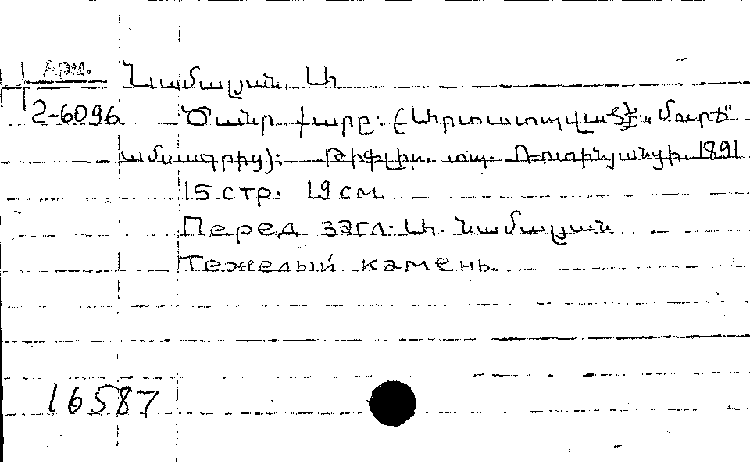 Арм. Նամալյան Ս.
2-6096 Ծանր քարը: (Արտատպված է „Մուրճ"
ամսագրից): Թիֆլիս. տպ. Ռոտինյանցի. 1891
15 стр. 19 см
Перед загл. Ս. Նամալյան
Тежелый камень
16587